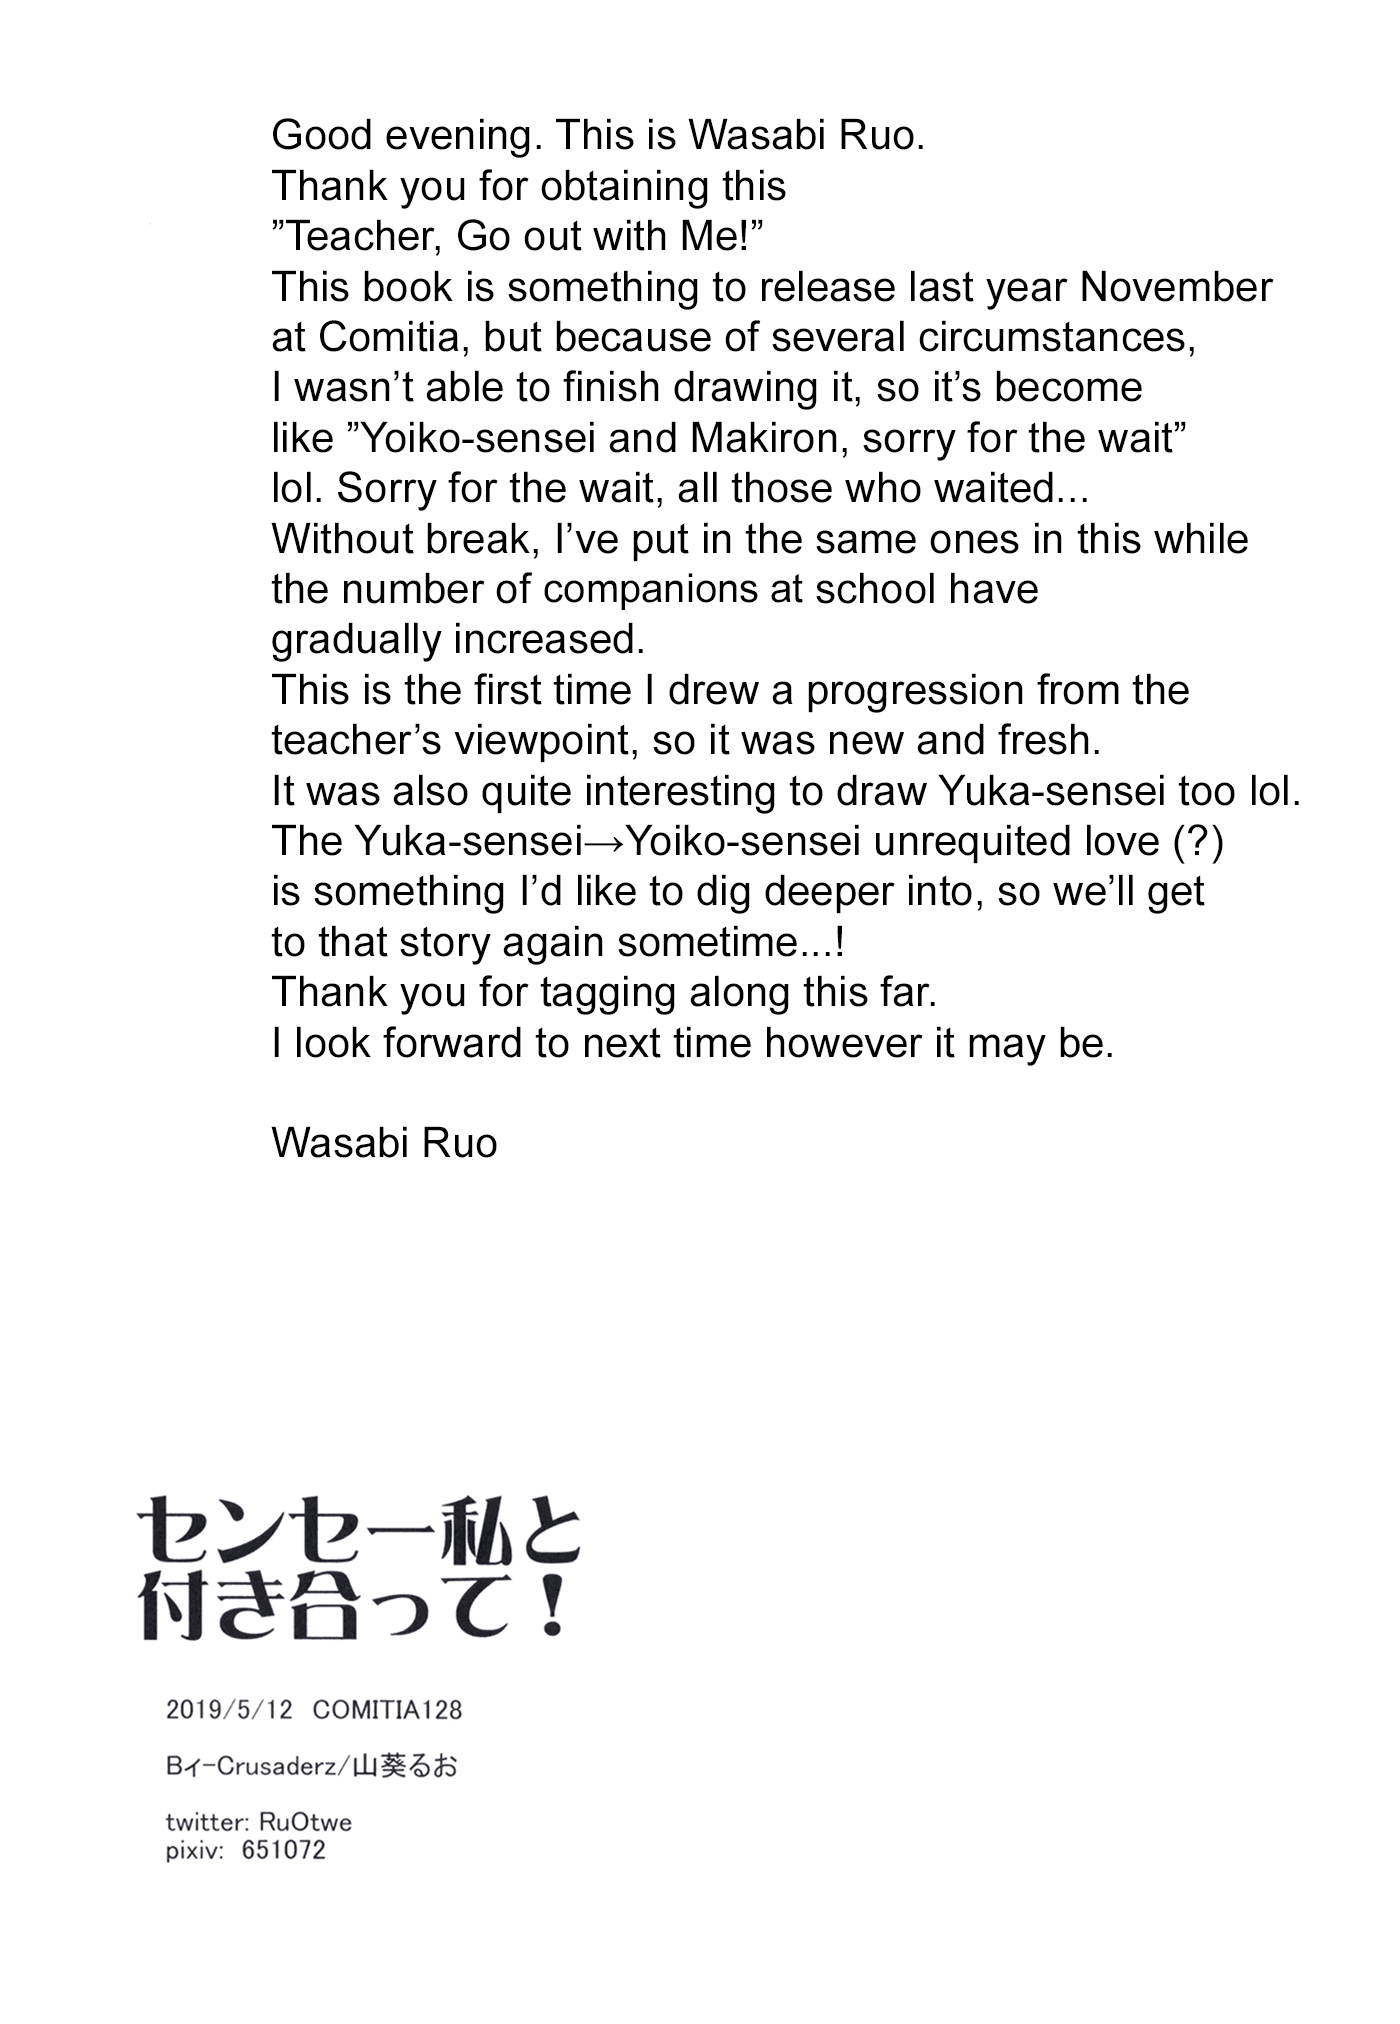 Good evening. This is Wasabi Ruo.
Thank you for obtaining this
”Teacher, Go out with Me!”
This book is something to release last year November
at Comitia, but because of several circumstances,
I wasn’t able to finish drawing it, so it’s become
like ”Yoiko-sensei and Makiron, sorry for the wait”
lol. Sorry for the wait, all those who waited...
Without break, I’ve put in the same ones in this while
the number of companions at school have
gradually increased.
This is the first time I drew a progression from the
teacher’s viewpoint, so it was new and fresh.
It was also quite interesting to draw Yuka-sensei too lol.
The Yuka-sensei→Yoiko-sensei unrequited love (?)
is something I’d like to dig deeper into, so we’ll get
to that story again sometime...!
Thank you for tagging along this far.
I look forward to next time however it may be.
Wasabi Ruo
センセー私と
付き合って！
2019/5/12 COMITIA128
Bィ-Crusaderz/山葵るお
twitter: RuOtwe
pixiv: 651072